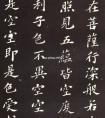 在菩薩行深般若
照見五蘊皆空度
利子色不異空空
是空空即是色受